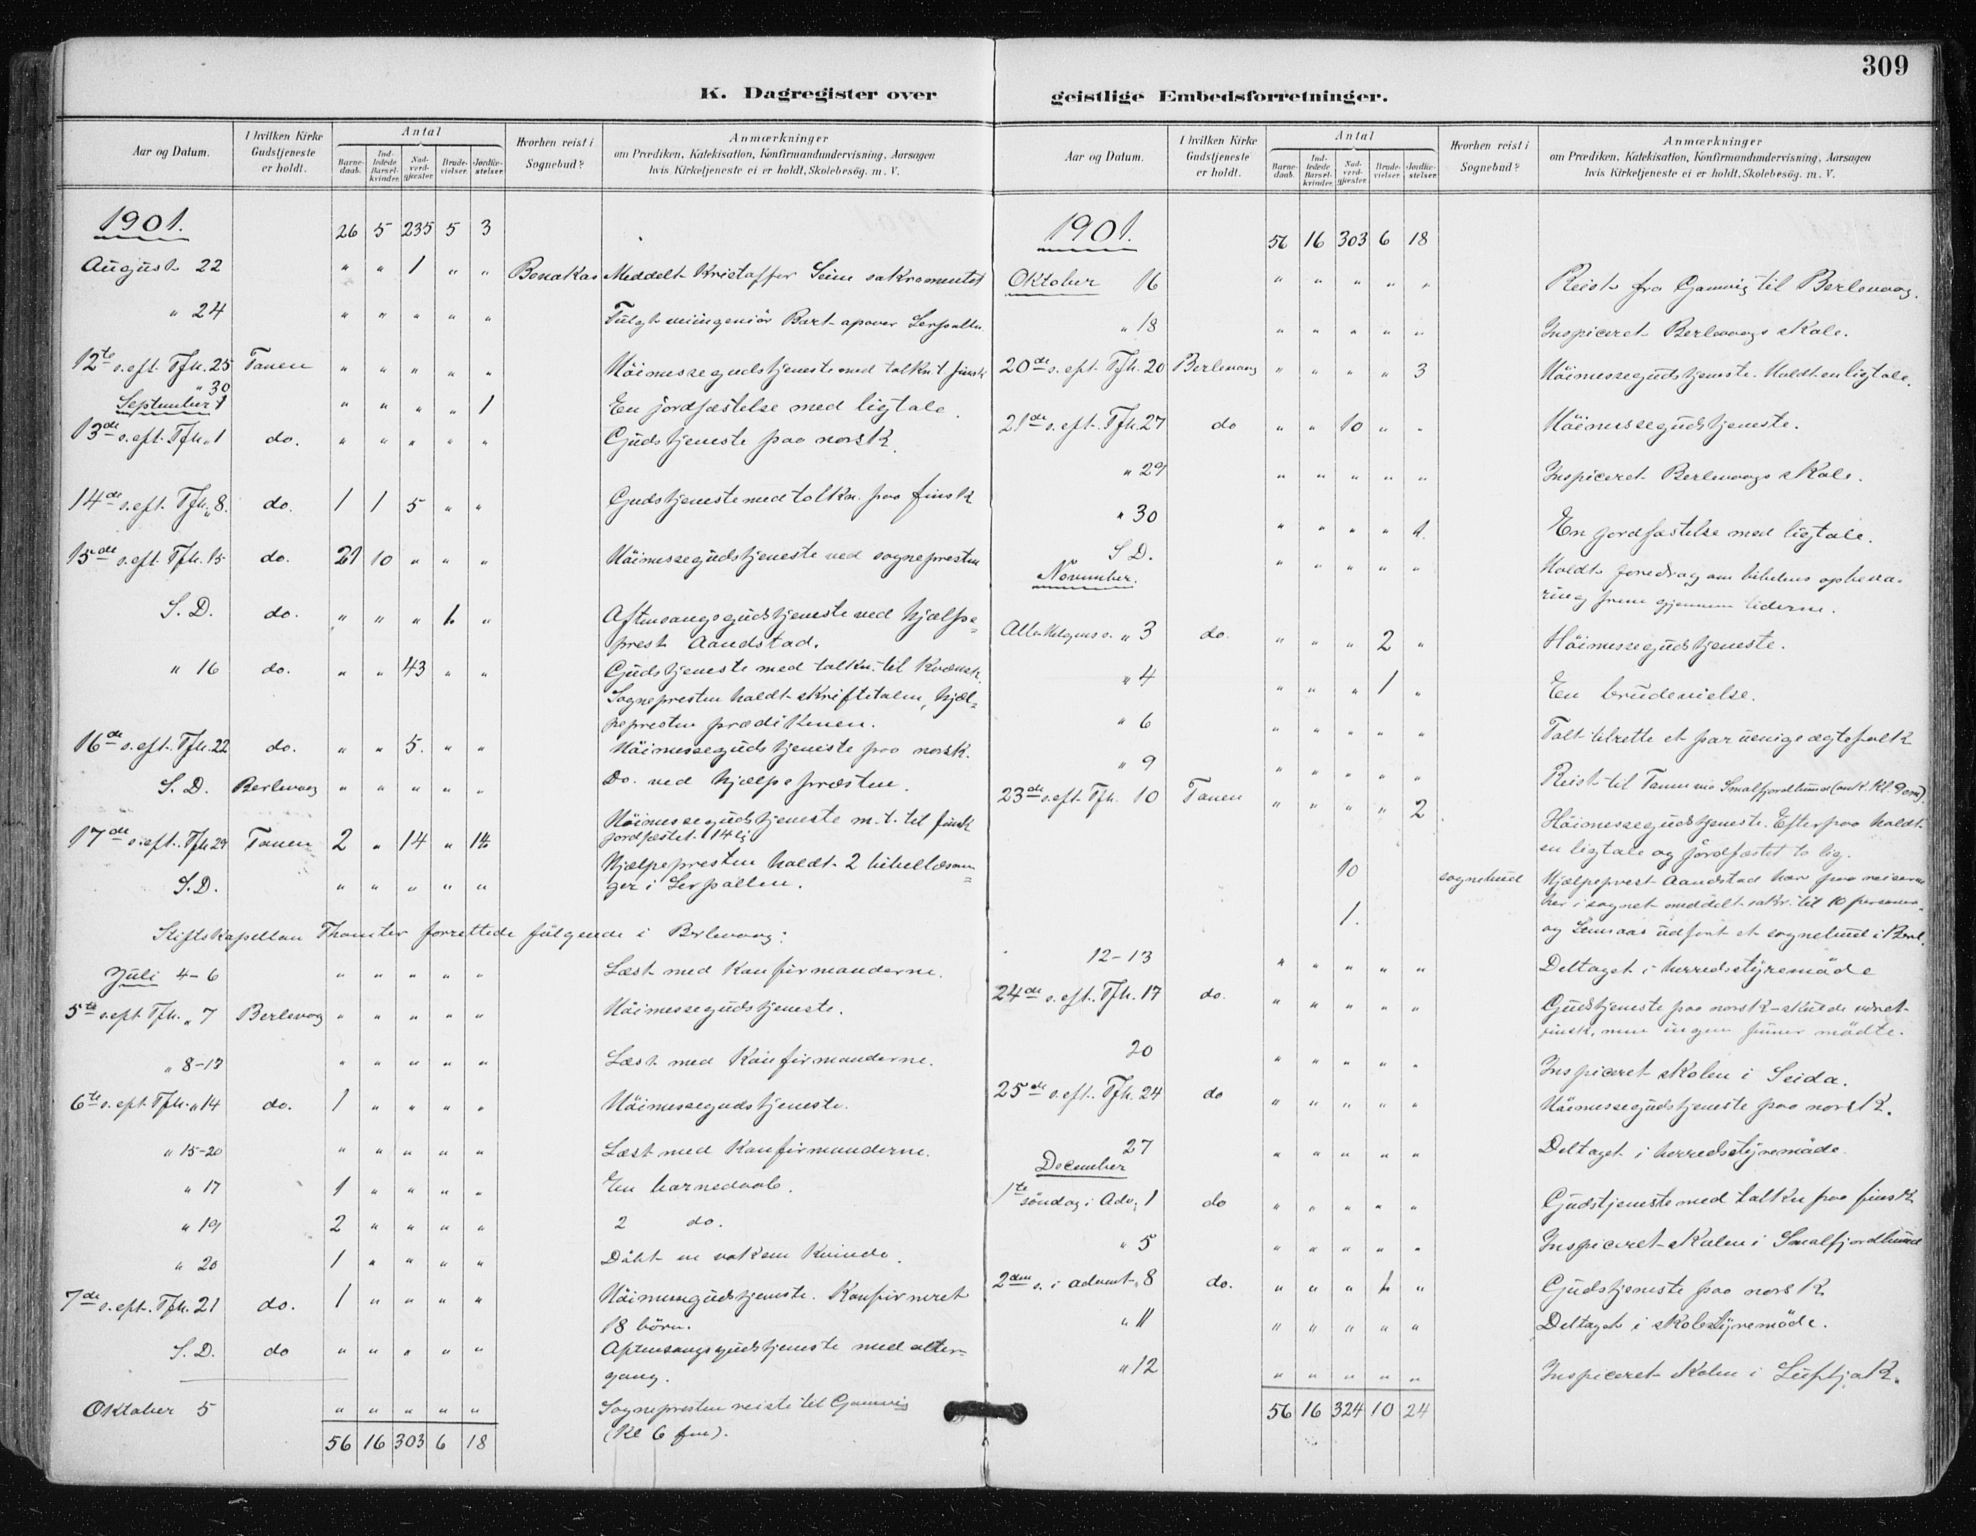 309
K. Dagregister over geistlige Embedsforretninger.
Aar og Datum. I hvilken Kirke Gudstjeneste er holdt. Antal Barne-daab. Ind-ledede Barsel-kvinder. Nad-verd-gjæster. Brude-vielser. Jordfæ-stelser. Hvorhen reist i Sognebud? Anmærkninger om Prædiken, Katekisation, Konfirmandundervisning, Aarsagen hvis Kirketjeneste ei er holdt, Skolebesøg. m. V.
1901. 26 5 235 5 3
August 22 " " 1 " " Bonakas Meddelt Kristoffer Seim sakramentet
" 24 " " " " "
12te s. eft. Tfh. 25 Tanen " " " " " Höimessegudstjeneste med tolkn. t. finsk
" 30
September 1 " " " " 1 En jordfæstelse med ligtale.
13de s. eft. Tfh. " 1 do. " " " " " Gudstjeneste paa norsk.
14de s. eft. Tfh. " 8. do. 1 1 5 " " Gudstjeneste med tolkn. paa finsk
15de s. eft. Tfh. 15 do. 21 10 " " " Höimessegudstjeneste ved sognepresten
S. D. do. " " " 1 " Aftensangsgudstjeneste ved hjælpe-
prest Aandstad.
" 16 do. " " 43 " " Gudstjeneste med tolkn. til kvænsk.
Sognepresten holdt skriftetalen, hjæl-
pepresten prædikenen.
16de s. eft. Tfh. 22 do. " " 5. " " Höimessegudstjeneste paa norsk.
S. D. Berlevaag " " " " " Do. ved hjælpepræsten.
Höimessegudstjeneste m. t. til finsk
17de s. eft. Tfh. 29 Tanen 2 " 14 " 14 jordfæstet 14 lig
Hjælpepresten holdt 2 bibellæsnin-
S. D. " " " " " ger i Lerpollen.
Stiftskapellan Thomter forrettede følgende i Berlevaag:
Juli 4-6 " " " " " Læst med konfirmanderne.
5te s. eft Tfh. " 7 Berlevaag " " " " " Höimessegudstjeneste.
" 8-13 " " " " " Læst med konfirmanderne.
6te s. eft Tfh. " 14 do. 1 " " " " Höimessegudstjeneste.
" 15-20 " " " " " Læst med konfirmanderne.
" 17 1 " " " " En barnedaab.
" 19 2 " " " " 2 do.
" 20 1 " " " " Döbt en voksen kvinde.
7de s. eft. Tfh. 21 do. 1 " " " " Höimessegudstjeneste. Konfirmeret
18 börn.
S. D. do " " " " " Aftensangsgudstjeneste med alter-
gang.
Oktober 5 " " " " " Sognepresten reiste til Gamvig
(kl 6 fm).
56 16 303 6 18
Aar og Datum. I hvilken Kirke Gudstjeneste er holdt. Antal Barne-daab. Ind-ledede Barsel-kvinder. Nad-verd-gjæster. Brude-vielser. Jordfæ-stelser. Hvorhen reist i Sognebud? Anmærkninger om Prædiken, Katekisation, Konfirmandundervisning, Aarsagen hvis Kirketjeneste ei er holdt, Skolebesøg. m. V.
1901. 56 16 303 6 18
Oktober 16 " " " " " Reist fra Gamvig til Berlevaag.
" 18 " " " " " Inspiceret Berlevaags skole.
20de s. eft. Tfh. 20 Berlevaag " " " " 3 Höimessegudstjeneste. Holdt en ligtale.
21de s. eft. Tfh. 27 do " " 10 " " Höimessegudstjeneste.
" 29 " " " " " Inspiceret Berlevaags skole.
" 30 " " " " 1. En jordfæstelse med ligtale.
S D. " " " " " Holdt foredrag om bibelens opbeva-
November. ring frem gjennem tiderne.
Alle helgens s. " 3 do. " " " 2 " Höimessegudstjeneste.
" 4 " " " 1 " En brudevielse.
" 6 " " " " " Talt tilrette et par uenige ægtefolk
" 9 " " " " " Reist til Tanen via Smalfjordbund (ank. kl. 9 em).
23de s. eft Tfh. 10 Tanen " " " " 2 Höimessegudstjeneste. Efterpaa holdt
en ligtale og jordfæstet to lig.
10 sognebud Hjælpeprest Aandstad har paa reiserne
her i sognet meddelt sakr. til 10 personer
1. og Lemsaas udført et sognebud i Berl.
12-13 " " " " " Deltaget i herredsstyremöde
24de s. eft. Tfh. 17 do. " " " " " Gudstjeneste paa norsk - skulde været
finsk, men ingen finner mödte.
20 " " " " " Inspiceret skolen i Seida.
25de s. eft. Tfh. 24 do " " " " " Höimessegudstjeneste paa norsk.
27 " " " " " Deltaget i herredsstyremöde
December
1te söndag i Adv. 1 do " " " " " Gudstjeneste med tolkn paa finsk
" 5 " " " " " Inspiceret skolen i Smalfjordbund
2den s. i advent. 8 do. " " " 1 " Gudstjeneste paa norsk
" 11 " " " " " Deltaget i skolestyremöde.
" 12 " " " " " Inspiceret skolen i Luftjok.
56 16 324 10 24